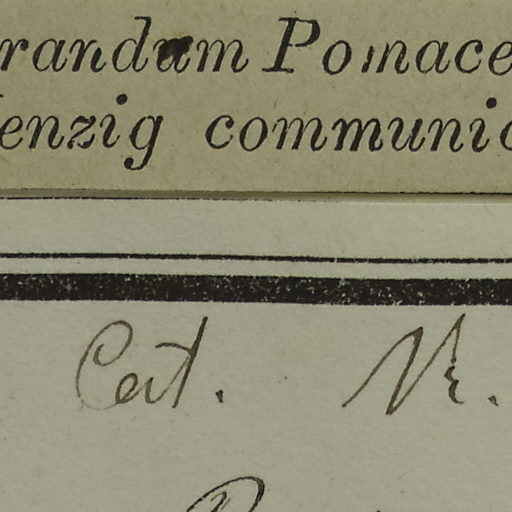 randum Pomace
enzig communi
Cat. Nr.